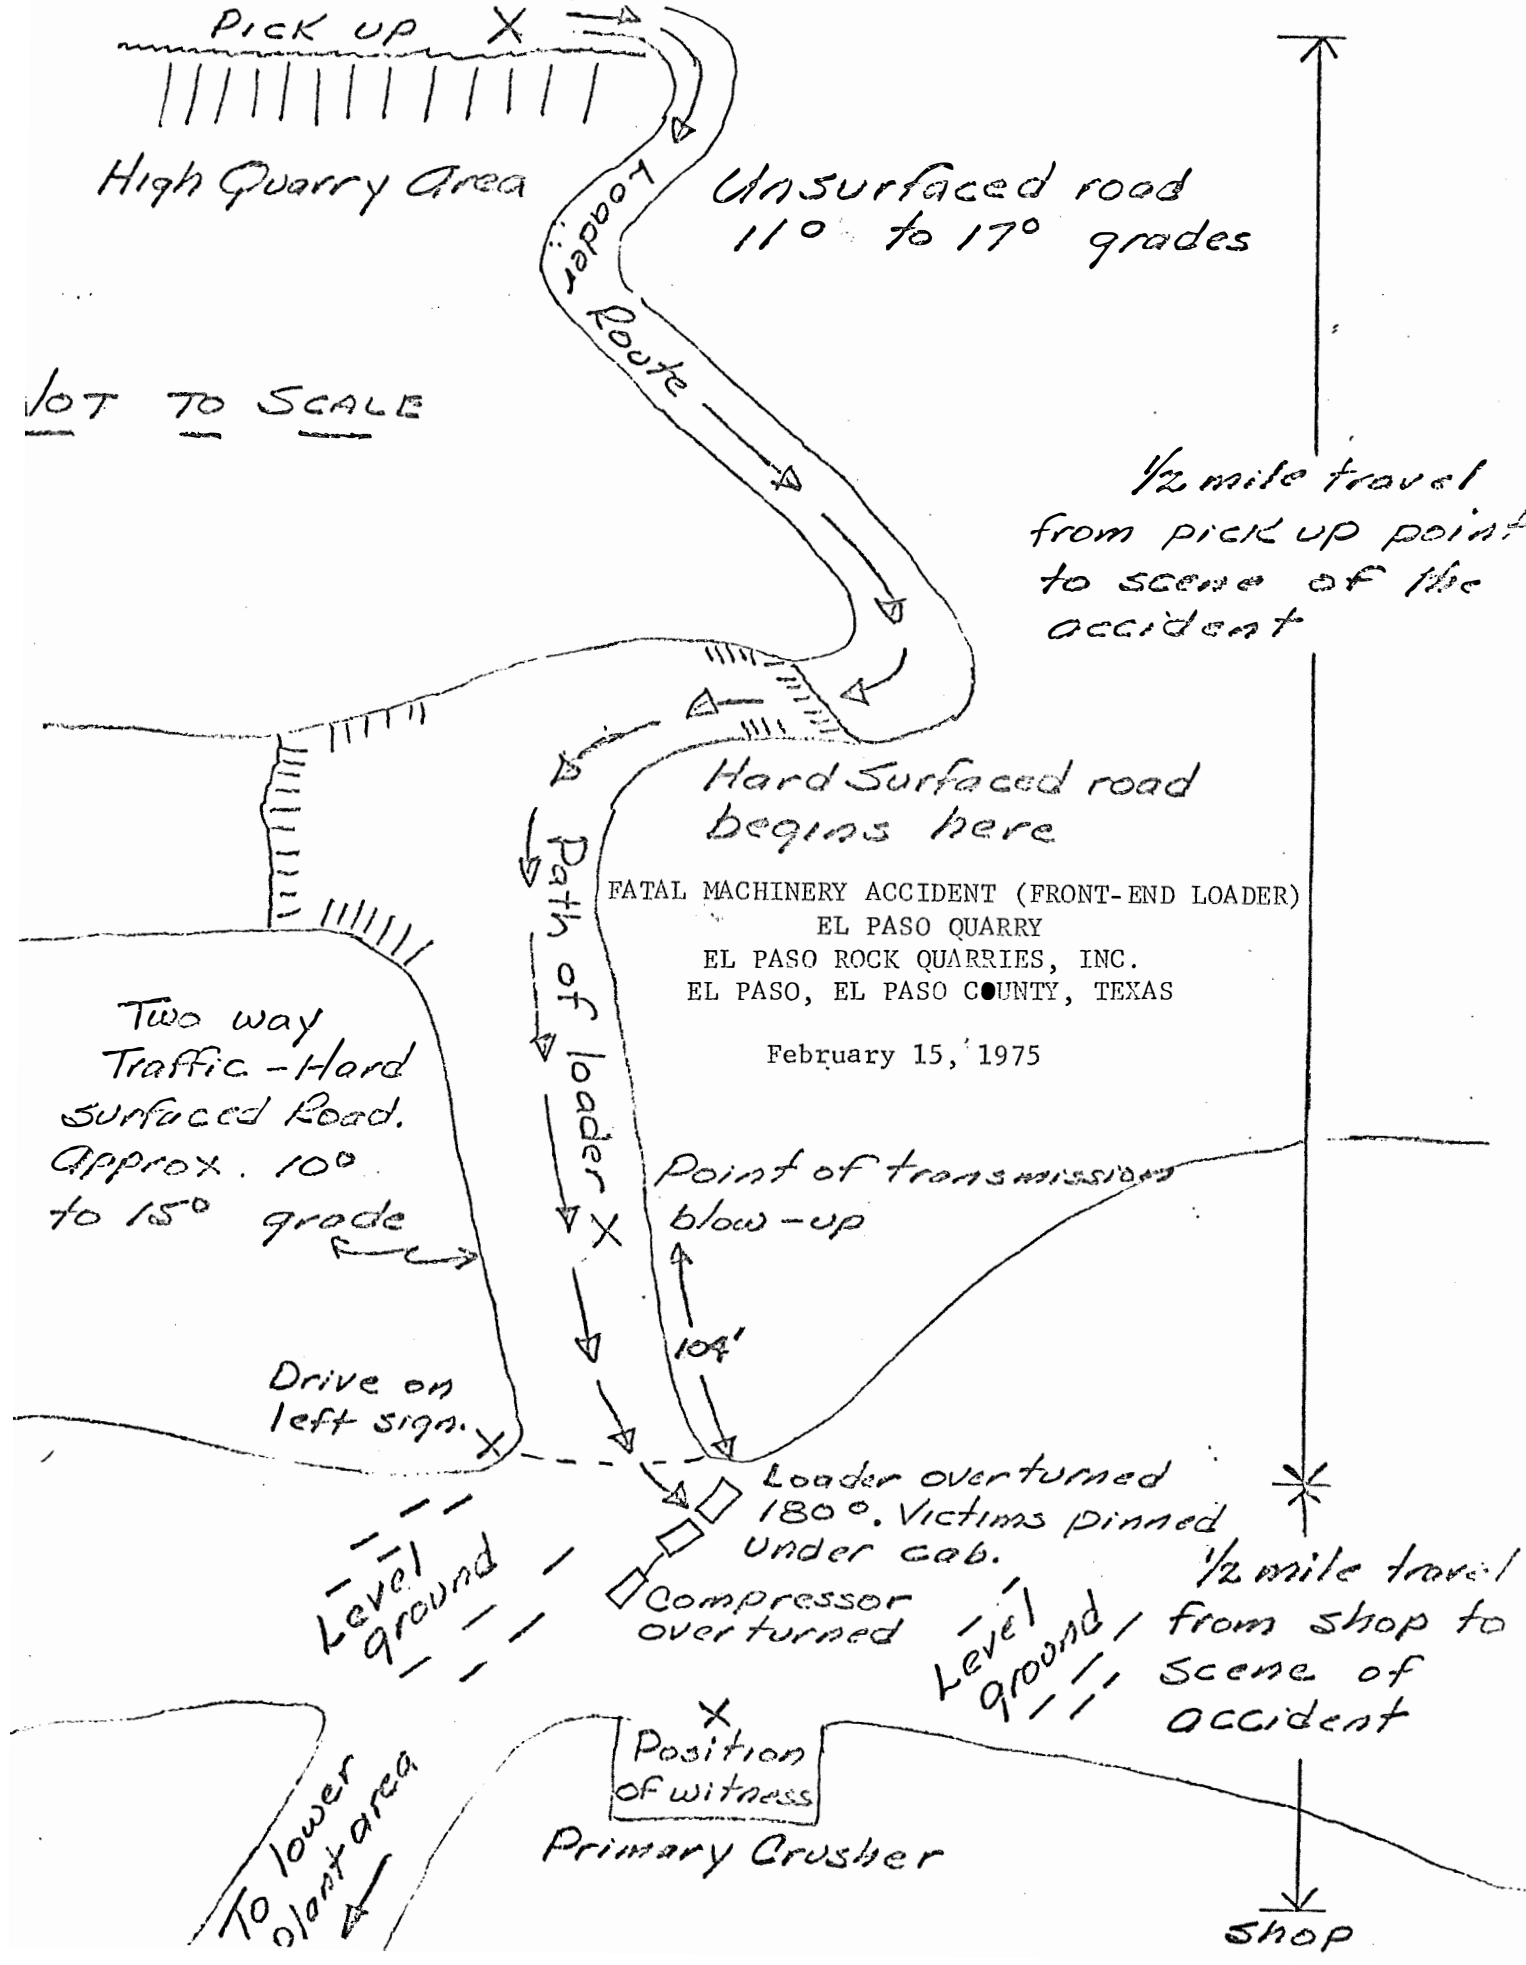 Pick up X
High Quarry Area
Unsurfaced road
11° to 17° grades
Loader Route
NOT TO SCALE
1/2 mile travel
from pick up point
to scene of the
accident
Hard Surfaced road
begins here
FATAL MACHINERY ACCIDENT (FRONT-END LOADER)
EL PASO QUARRY
EL PASO ROCK QUARRIES, INC.
EL PASO, EL PASO COUNTY, TEXAS
February 15, 1975
Path of loader X
Two way
Traffic - Hard
surfaced Road.
Approx. 10°
to 15° grade
Point of transmission
blow-up
104'
Drive on
left sign. X
Loader overturned
180°. Victims pinned
under cab.
Compressor
overturned
Level
ground
Level
ground
1/2 mile travel
from shop to
scene of
accident
X
Position
of witness
Primary Crusher
To lower
plant area
shop